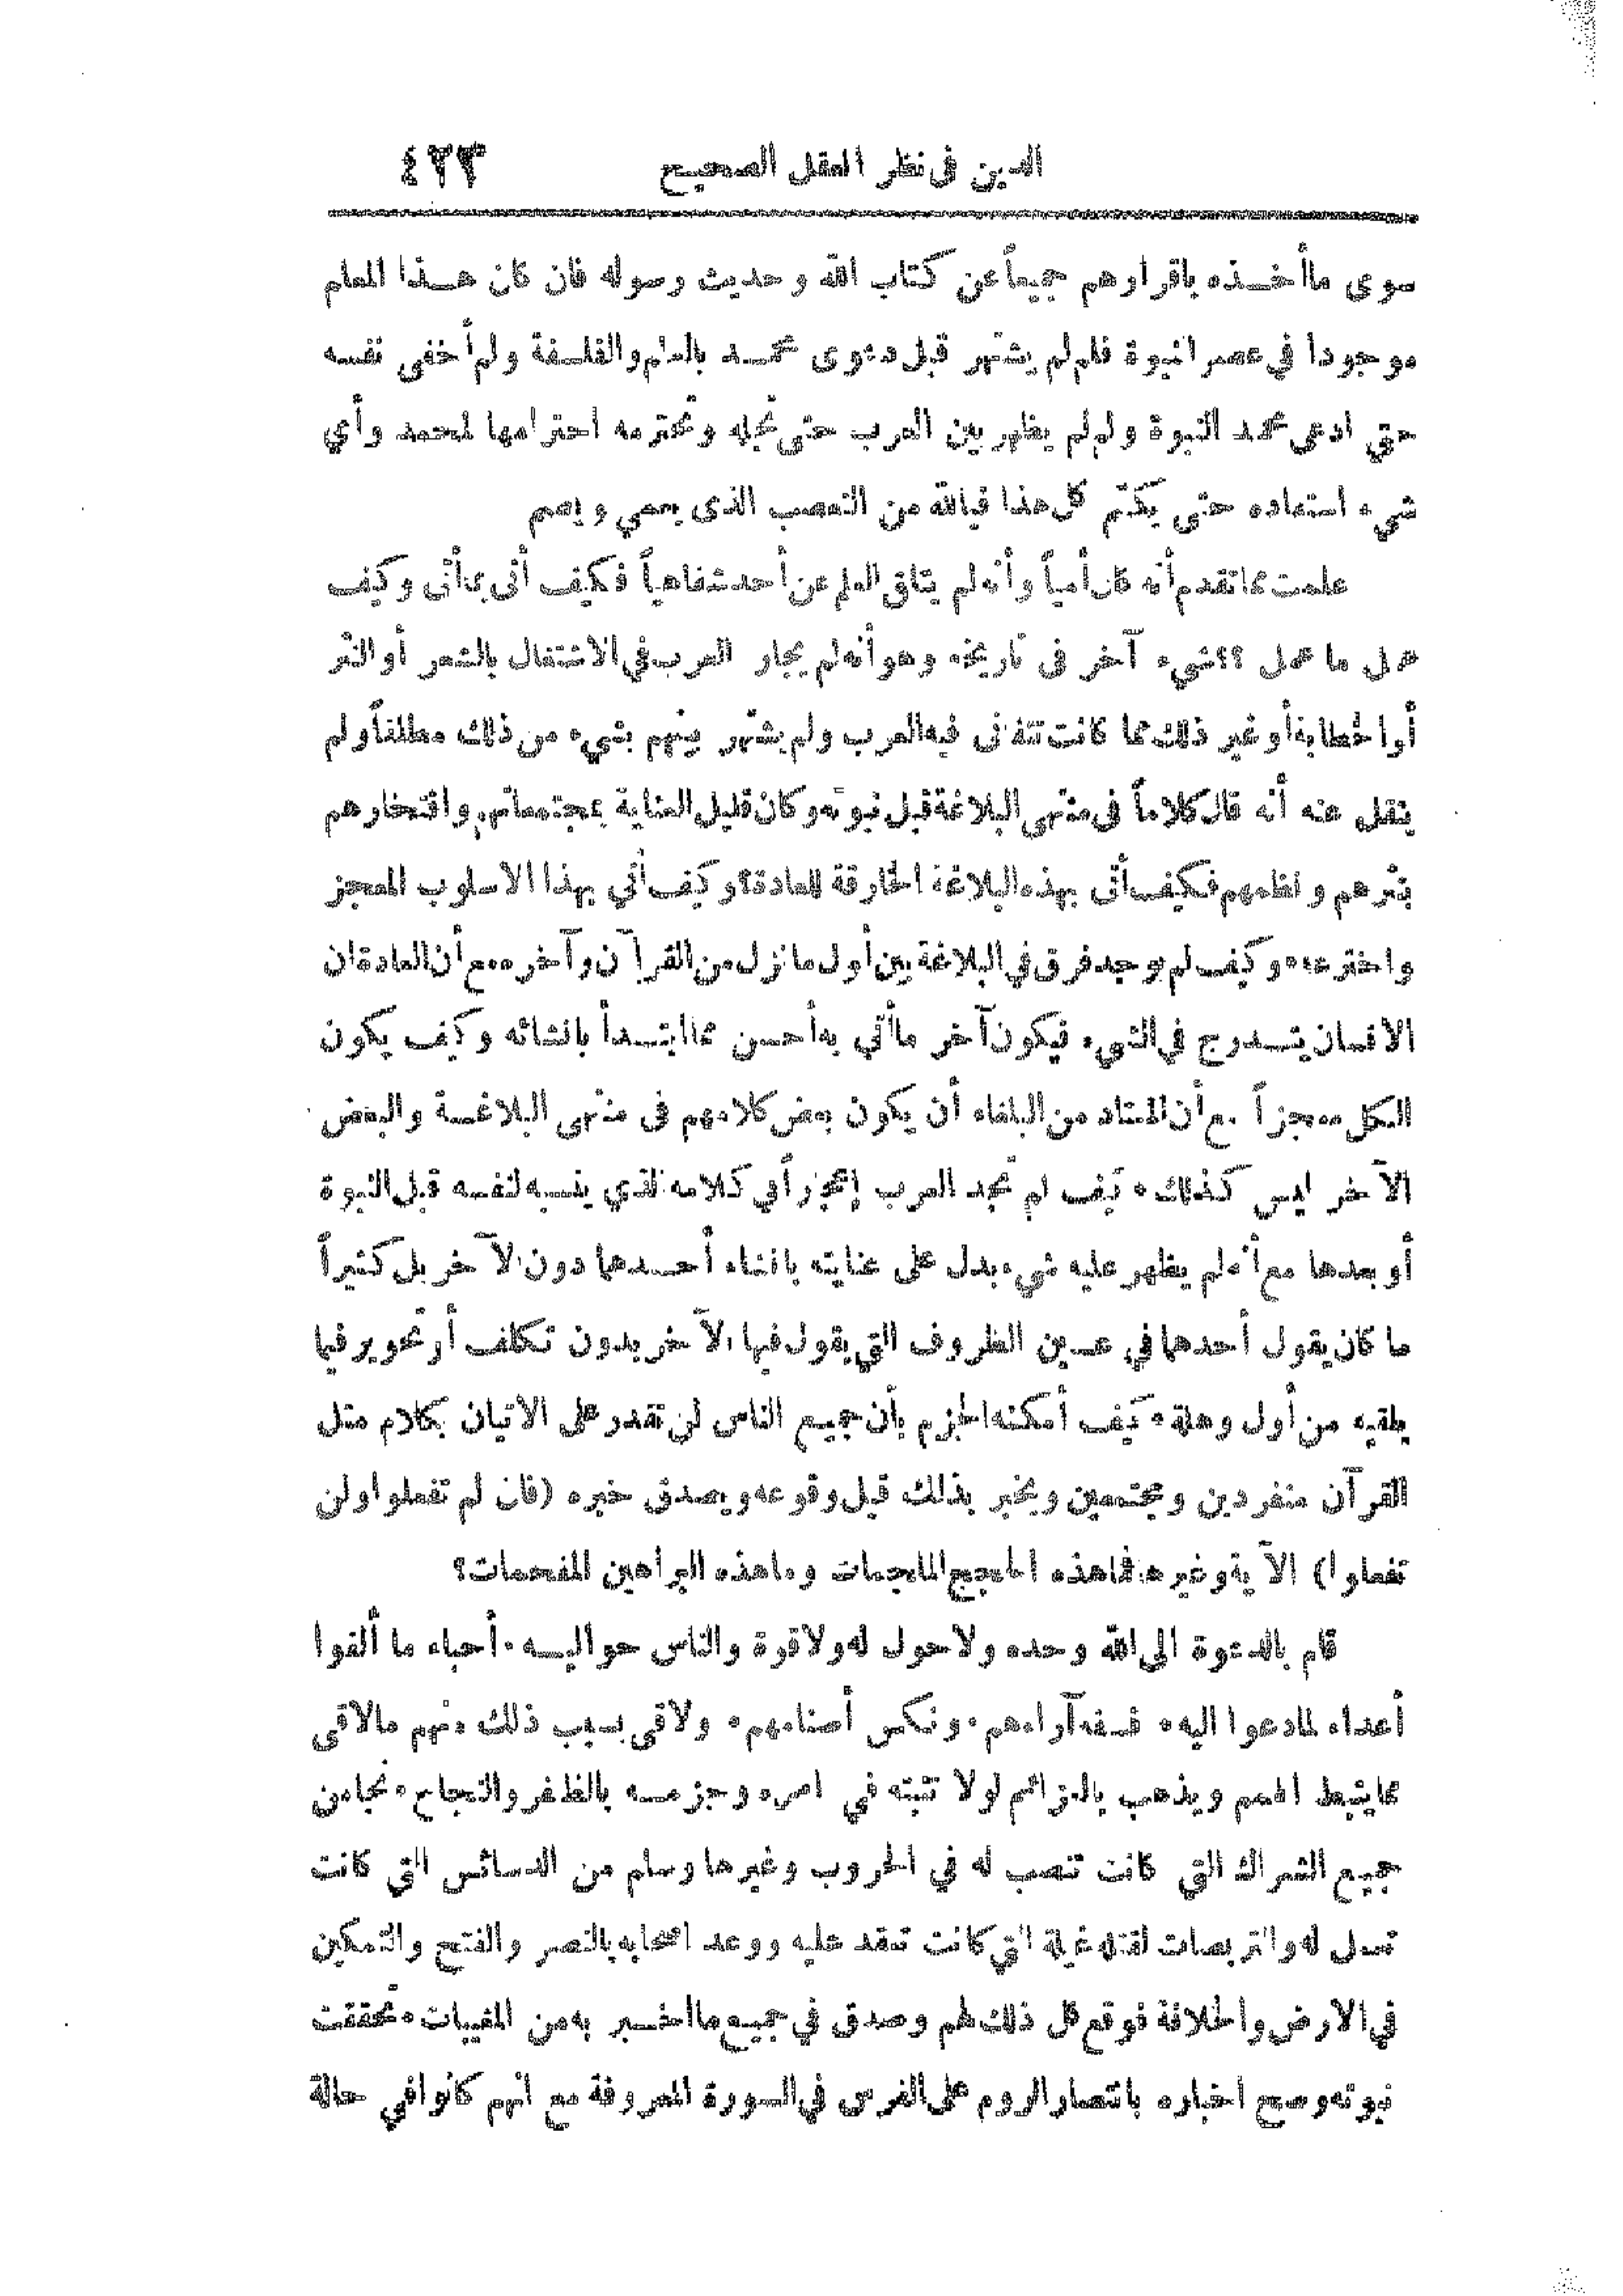 الدين في نظر العقل الصحيح ٤٢٣
سوى ما أخذه باقرارهم جميعاً عن كتاب الله وحديث رسوله فان كان هذا المعلم
موجودا في عصر النبوة فلم لم يشتهر قبل دعوى محمد بالعلم والفلسفة ولم أخفى نفسه
حتى ادعى محمد النبوة ولم لم يظهر بين العرب حتى تجله وتحترمه احترامها لمحمد وأي
شيء استفاده حتى يكتم كل هذا فيالله من التعصب الذى يعمي ويصم
علمت مما تقدم أنه كان أمياً وأنه لم يتلق العلم عن أحد شفاهياً فكيف أتى بما أتى وكيف
عمل ما عمل ؟؟ شيء آخر في تاريخه وهو أنه لم يجار العرب في الاشتغال بالشعر أو النثر
أو الخطابة أو غير ذلك مما كانت تتفانى فيه العرب ولم يشتهر بينهم بشيء من ذلك مطلقاً ولم
ينقل عنه أنه قال كلاماً في منتهى البلاغة قبل نبوته وكان قليل العناية بمجتمعاتهم وافتخارهم
بنثرهم ونظمهم فكيف أتى بهذه البلاغة الخارقة للعادة؟ وكيف أتي بهذا الاسلوب المعجز
واخترعه، وكيف لم يوجد فرق في البلاغة بين أول ما نزل من القرآن وآخره مع أن العادة ان
الانسان يتدرج في الشيء فيكون آخر ما أتي به أحسن مما ابتدأ بانشائه وكيف يكون
الكل معجزاً مع أن المعتاد من البلغاء أن يكون بعض كلامهم في منتهى البلاغة والبعض
الآخر ليس كذلك، كيف لم تجد العرب إعجازاً في كلامه الذي ينسبه لنفسه قبل النبوة
أو بعدها مع أنه لم يظهر عليه شيء يدل على عنايته بانشاء أحدهما دون الآخر بل كثيراً
ما كان يقول أحدهما في عين الظروف التي يقول فيها الآخر بدون تكلف أو تحوير فيما
يلقيه من أول وهلة، كيف أمكنه الجزم بأن جميع الناس لن تقدر على الاتيان بكلام مثل
القرآن منفردين ومجتمعين ويخبر بذلك قبل وقوعه ويصدق خبره (فان لم تفعلوا ولن
تفعلوا) الآية وغيرها فما هذه الحجج الملجمات وما هذه البراهين المفحمات؟
قام بالدعوة الى الله وحده ولا حول له ولا قوة والناس حواليه، أحباء ما ألفوا
أعداء لما دعوا اليه، فسفه آراءهم، ونكس أصنامهم، ولاقى بسبب ذلك منهم ما لاقى
مما يثبط الهمم ويذهب بالعزائم لولا تثبته في امره وجزمه بالظفر والنجاح، نجا من
جميع الشراك التي كانت تنصب له في الحروب وغيرها وسلم من الدسائس التي كانت
تعمل له والتربصات لقتله غيلة التي كانت تعقد عليه ووعد اصحابه بالنصر والفتح والتمكين
في الارض والخلافة فوقع كل ذلك لهم وصدق في جميع ما اخبر به من المغيبات، تحققت
نبوته وصح اخباره بانتصار الروم على الفرس في السورة المعروفة مع انهم كانوا في حالة